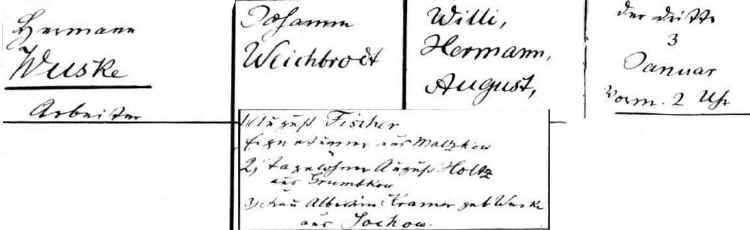 Hermann
Wuske
Arbeiter
Johann
Weichbrodt
Willi,
Hermann,
August,
der dritte
3
Januar
Vorm. 2 Uhr
1) August Fischer
Eigentümer aus Malzkow
2) Tagelöhner August Holtz
aus Grumbkow
3) Frau Albertine Kramer geb Wuske
aus Jochow.